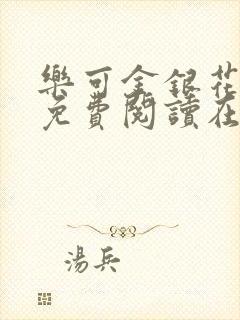 樂可金銀花
免費閱讀在
湯兵